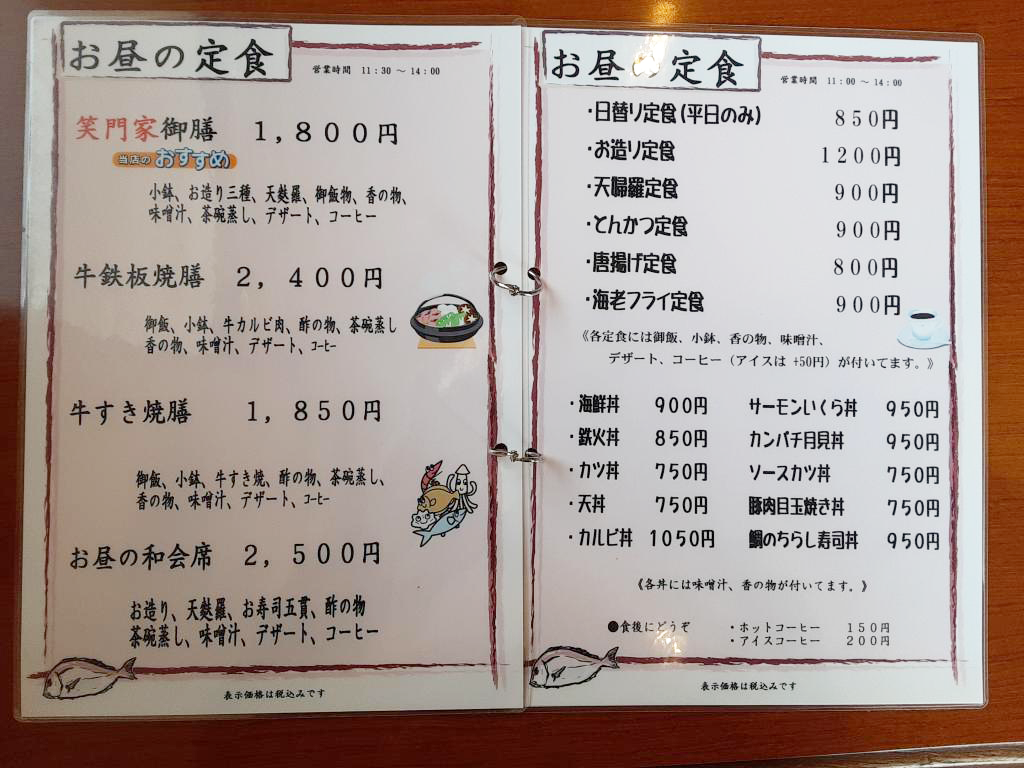 お昼の定食
営業時間 11:30 ～ 14:00
笑門家御膳 1,800円
当店の おすすめ
小鉢、お造り三種、天麩羅、御飯物、香の物、
味噌汁、茶碗蒸し、デザート、コーヒー
牛鉄板焼膳 2,400円
御飯、小鉢、牛カルビ肉、酢の物、茶碗蒸し
香の物、味噌汁、デザート、コーヒー
牛すき焼膳 1,850円
御飯、小鉢、牛すき焼、酢の物、茶碗蒸し、
香の物、味噌汁、デザート、コーヒー
お昼の和会席 2,500円
お造り、天麩羅、お寿司五貫、酢の物
茶碗蒸し、味噌汁、デザート、コーヒー
表示価格は税込みです
お昼の定食
営業時間 11:00 ～ 14:00
・日替り定食(平日のみ) 850円
・お造り定食 1200円
・天婦羅定食 900円
・とんかつ定食 900円
・唐揚げ定食 800円
・海老フライ定食 900円
《各定食には御飯、小鉢、香の物、味噌汁、
デザート、コーヒー（アイスは +50円）が付いてます。》
・海鮮丼 900円 サーモンいくら丼 950円
・鉄火丼 850円 カンパチ月見丼 950円
・カツ丼 750円 ソースカツ丼 750円
・天丼 750円 豚肉目玉焼き丼 750円
・カルビ丼 1050円 鯛のちらし寿司丼 950円
《各丼には味噌汁、香の物が付いてます。》
●食後にどうぞ ・ホットコーヒー 150円
・アイスコーヒー 200円
表示価格は税込みです